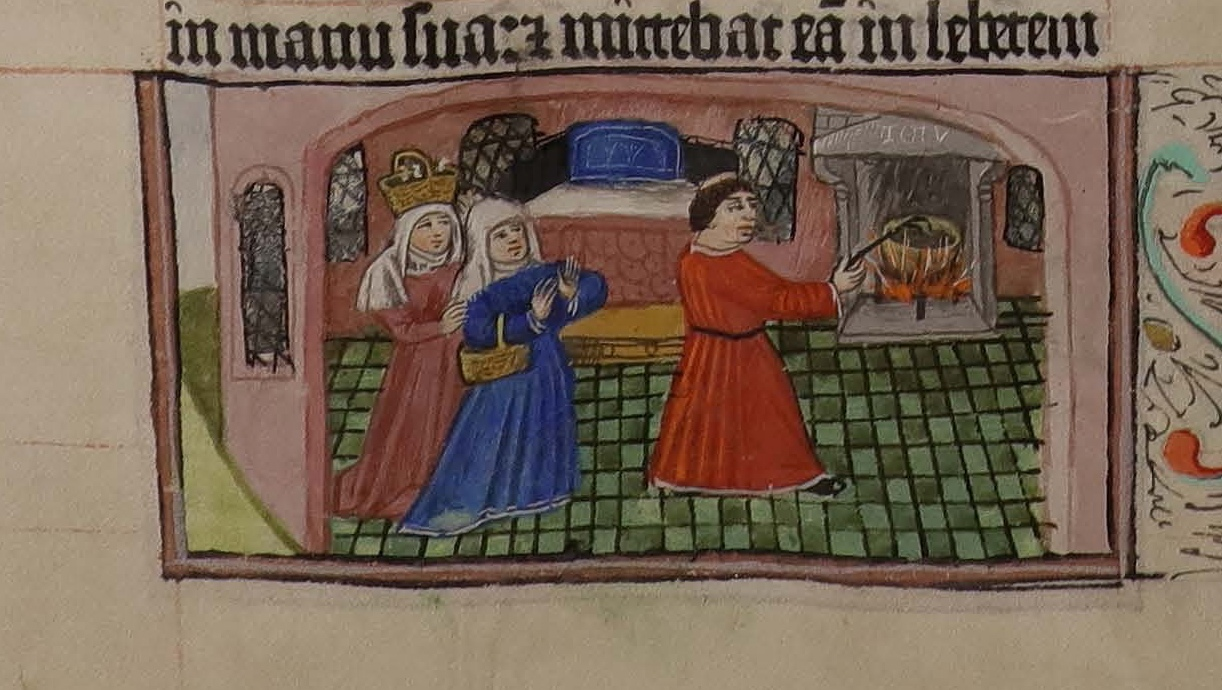 in manu sua:⁊ mittebat eā in lebetem